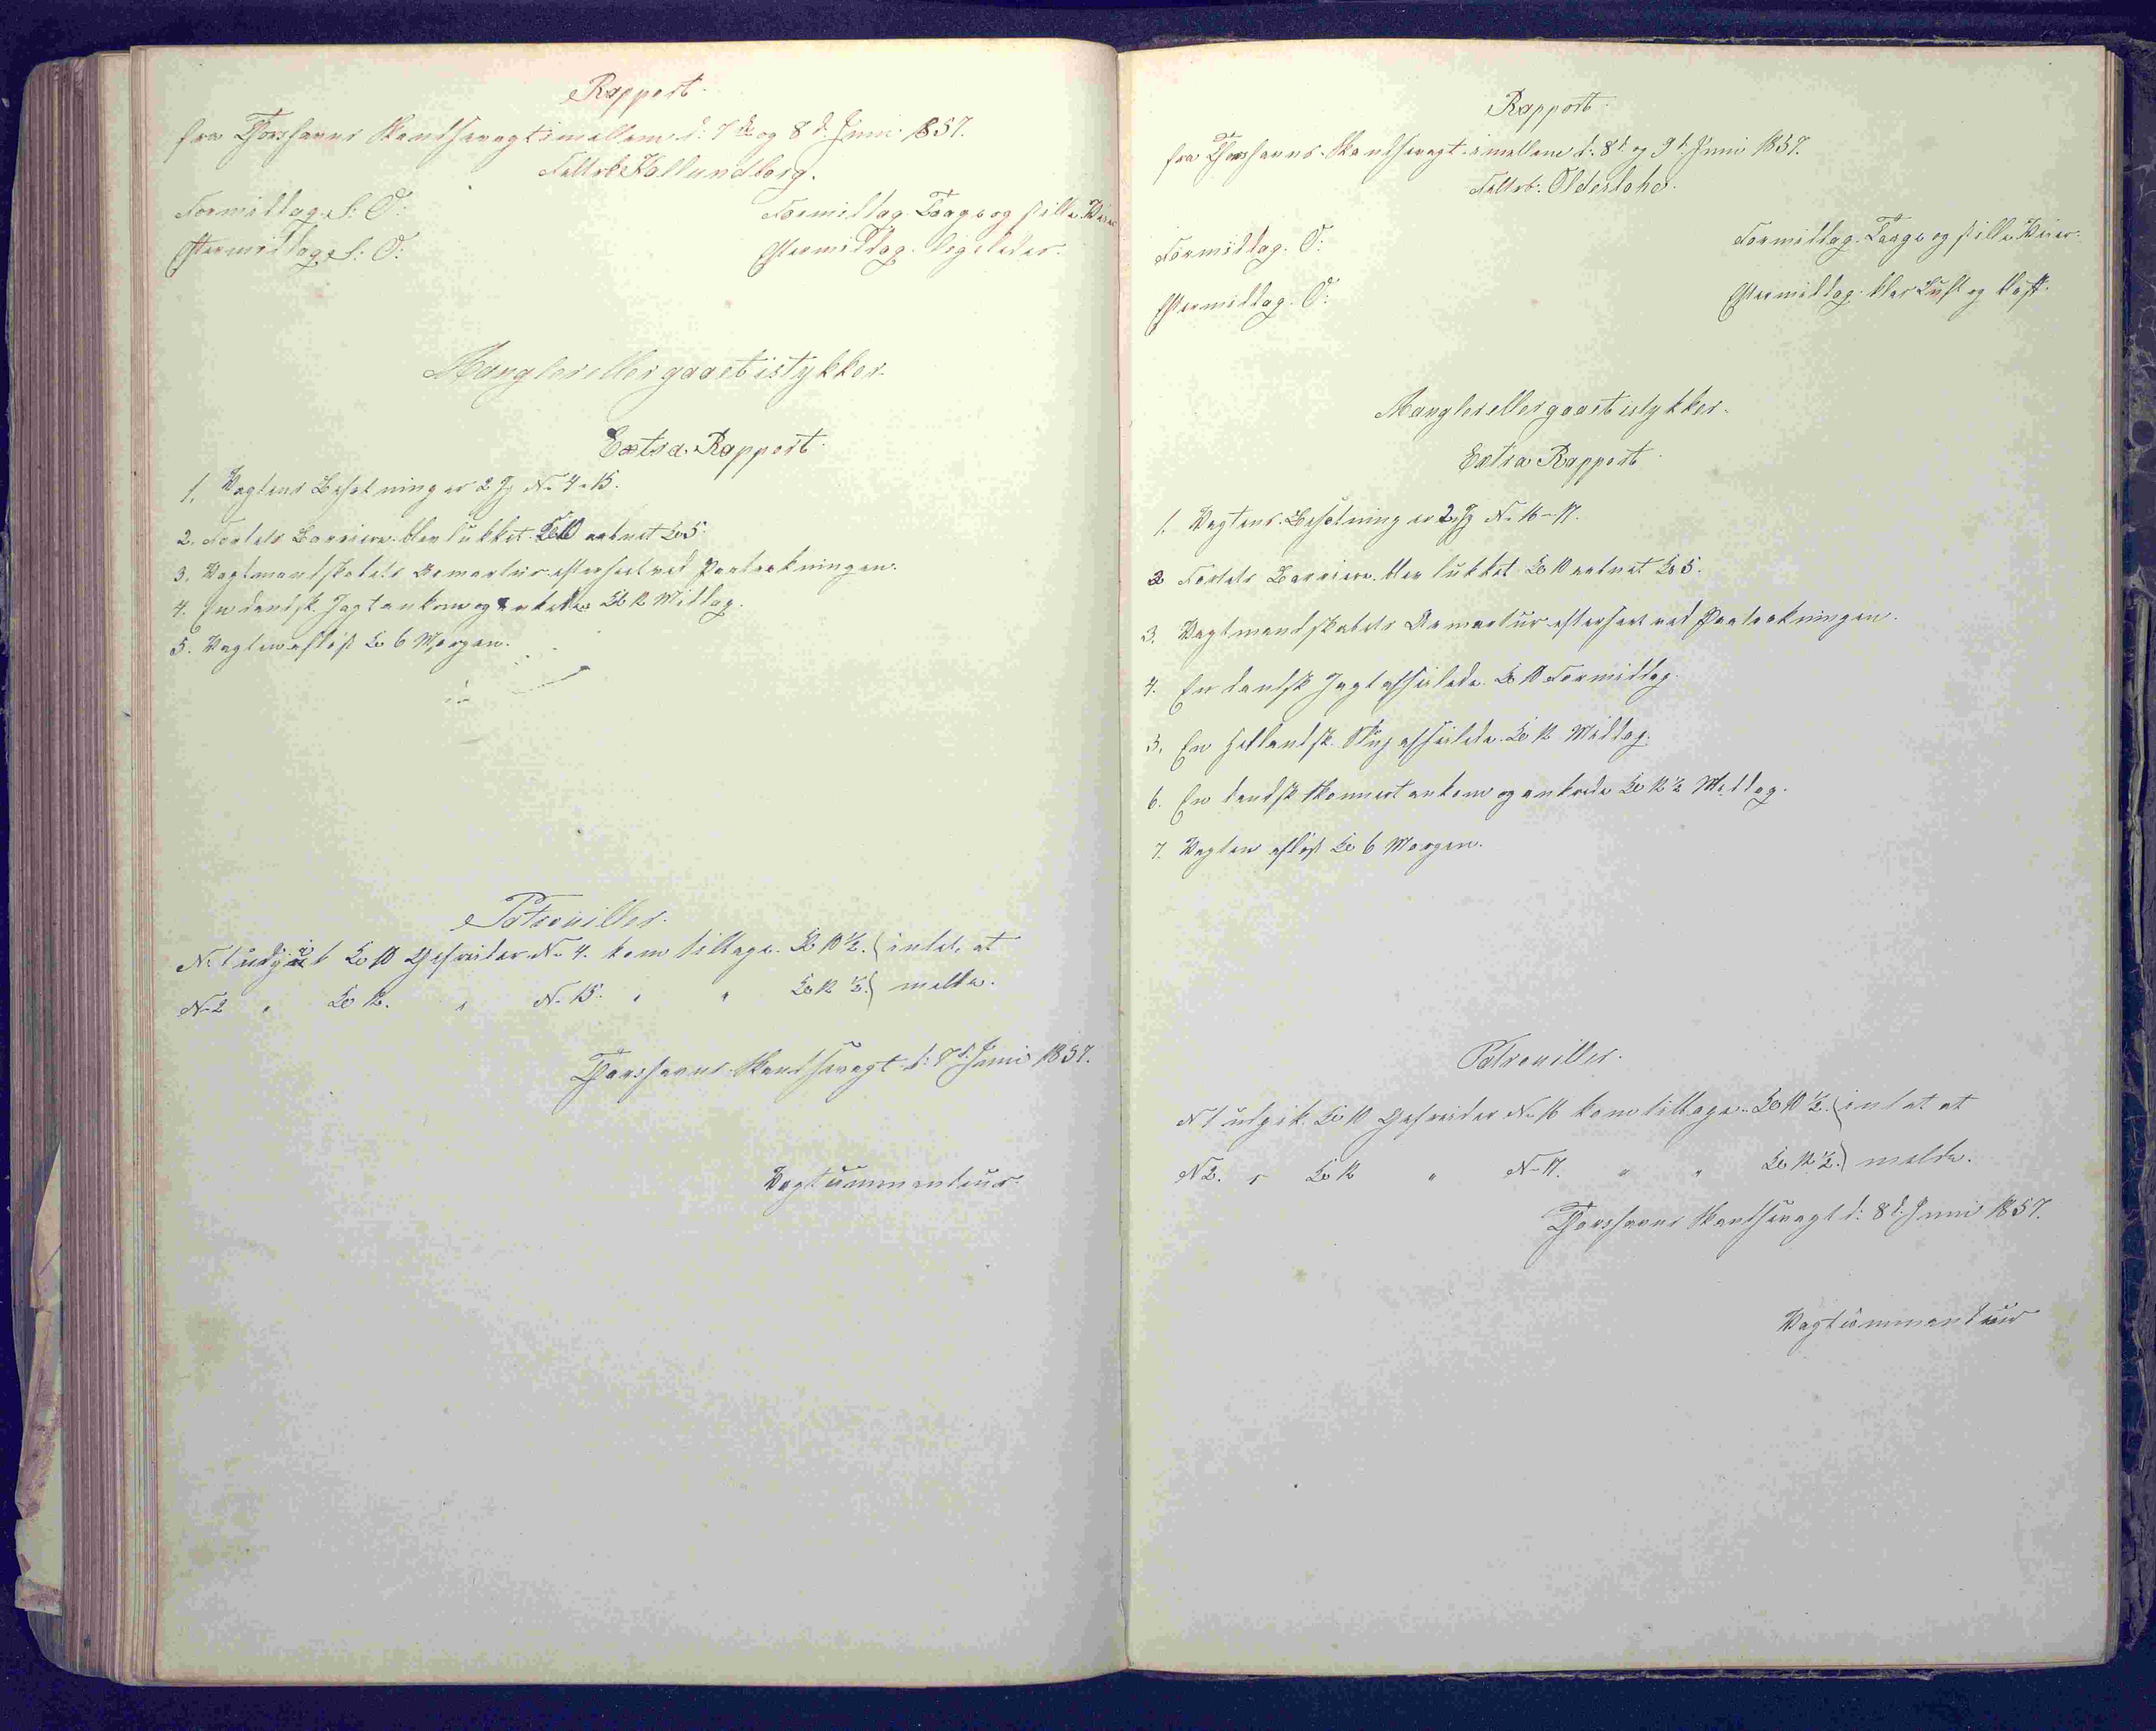 Rapport
fra Thorshavns Skandsevagt imellem d: 7de og 8d Juni 1857.
Feltrb: Kallundborg.
Formiddag. S: O:
Formiddag. Taage og stille Veir
Eftermiddag. S: O:
Eftermiddag. ligeledes.
Mangler eller gaaet istykker.
Extra Rapport.
1. Vagtens Besætning er 2 Jg No 4 - 15.
2. Fortets Barriere blev lukket Kl 10 aabnet Kl 5.
3. Vagtmandskabets Armartur efterseet ved Paatrækningen.
4. En dansk Jagt ankom og ankrede Kl 12 Middag.
5. Vagten afløst Kl 6 Morgen.
Patrouiller.
No 1 udgik Kl 10 Gefreider No 4. kom tilbage Kl 10½. intet at
No 2 " Kl 12. " No 15. " " Kl 12½. melde.
Thorshavns Skandsevagt d: 7d Juni 1857.
Vagtcommandeur.
Rapport
fra Thorshavns Skandsevagt imellem d: 8d og 9d Juni 1857.
Feltrb: Oldeslohe.
Formiddag. O:
Formiddag. Taage og stille Veir.
Eftermiddag. O:
Eftermiddag. klar Luft og blæst.
Mangler eller gaaet istykker.
Extra Rapport
1. Vagtens Besætning er 2 Jg No 16 - 17.
2 Fortets Barriere blev lukket Kl 10 aabnet Kl 5.
3. Vagtmandskabets Armartur efterseet ved Paatrækningen.
4. En dansk Jagt afseilede Kl 10 Formiddag.
5. En hetlandsk Slup afseilede Kl 12 Middag.
6. En dansk Skonnert ankom og ankrede Kl 12½ Middag.
7. Vagten afløst Kl 6 Morgen.
Patrouiller.
No 1 udgik Kl 10 Gefreider No 16 kom tilbage Kl 10½. intet at
No 2. " Kl 12 " No 17. " " Kl 12½. melde.
Thorshavns Skandsevagt d: 8d Juni 1857.
Vagtcommandeur